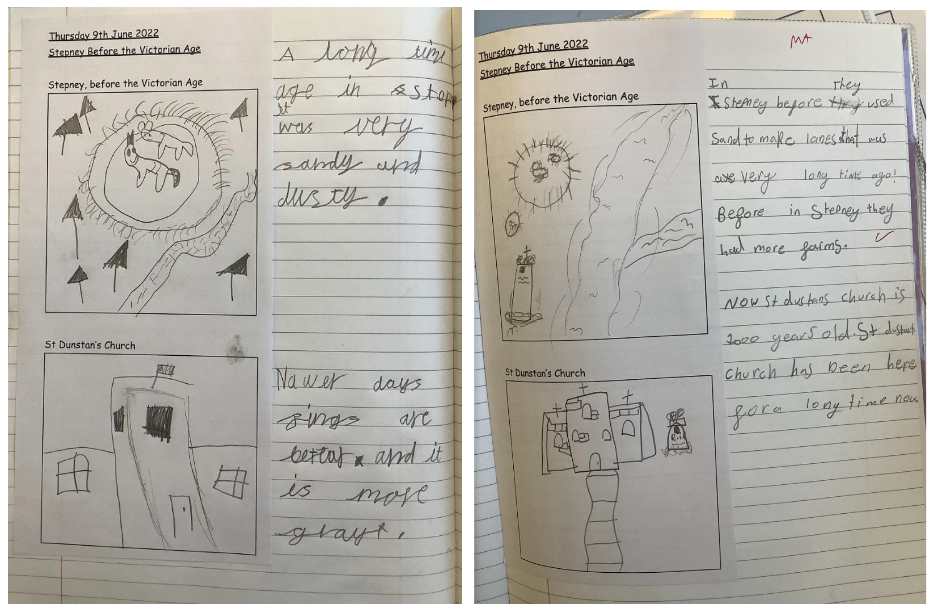 Thursday 9th June 2022
Stepney Before the Victorian Age
Stepney, before the Victorian Age
A long time
age in sstop
it
was very
sandy and
dusty.
St Dunstan's Church
Nawer days
sings are
better and it
is more
grayt.
Thursday 9th June 2022
Stepney Before the Victorian Age
Stepney, before the Victorian Age
In They
Stepney before they used
Sand to make lanes that was
very long time ago!
Before in Stepney they
had more farms.
St Dunstan's Church
Now St dustans church is
1000 years old. St dustans
church has been here
for a long time now